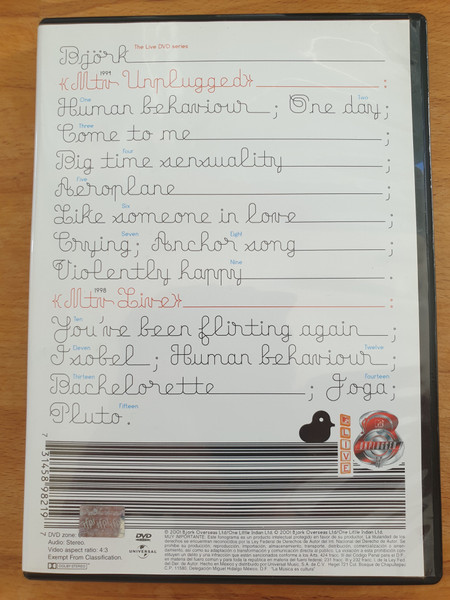 Björk The Live DVD series
1994
«Mtv Unplugged» :
One Two
Human behaviour ; One day;
Three
Come to me ;
Four
Big time sensuality ;
Five
Aeroplane ;
Six
Like someone in love ;
Seven Eight
Crying; Anchor song ;
Nine
Violently happy .
1998
«Mtv Live» :
Ten
You've been flirting again ;
Eleven Twelve
Isobel ; Human behaviour ;
Thirteen Fourteen
Bachelorette ; Joga;
Fifteen
Pluto.
LIVE
7 31458 98219 7
DVD zone:
Audio: Stereo.
Video aspect ratio: 4:3
Exempt From Classification.
DVD
VIDEO
UNIVERSAL
℗ 2001 Bjork Overseas Ltd/One Little Indian Ltd. © 2001 Bjork Overseas Ltd/One Little Indian Ltd.